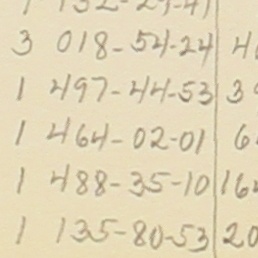 1 132-29-41
3 018-54-24 4
1 497-44-53 3
1 464-02-01 6
1 488-35-10 16
1 135-80-53 20